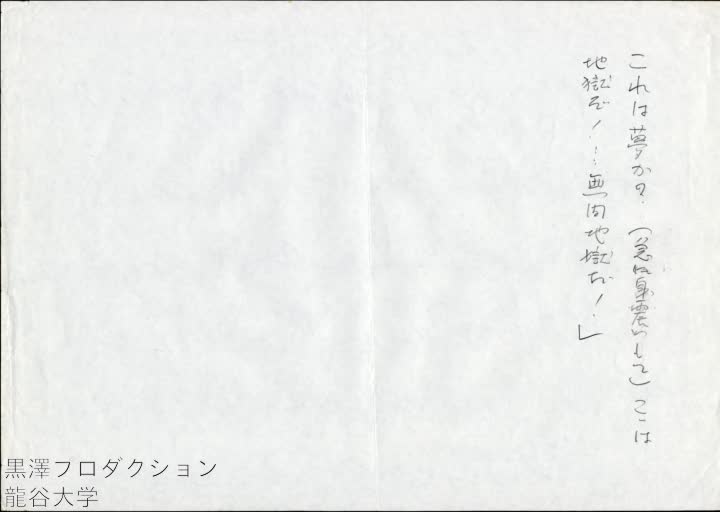 これは夢か?(急に身震いして)ここは
地獄だ!…無間地獄だ!」
黒澤フロダクション
龍谷大学